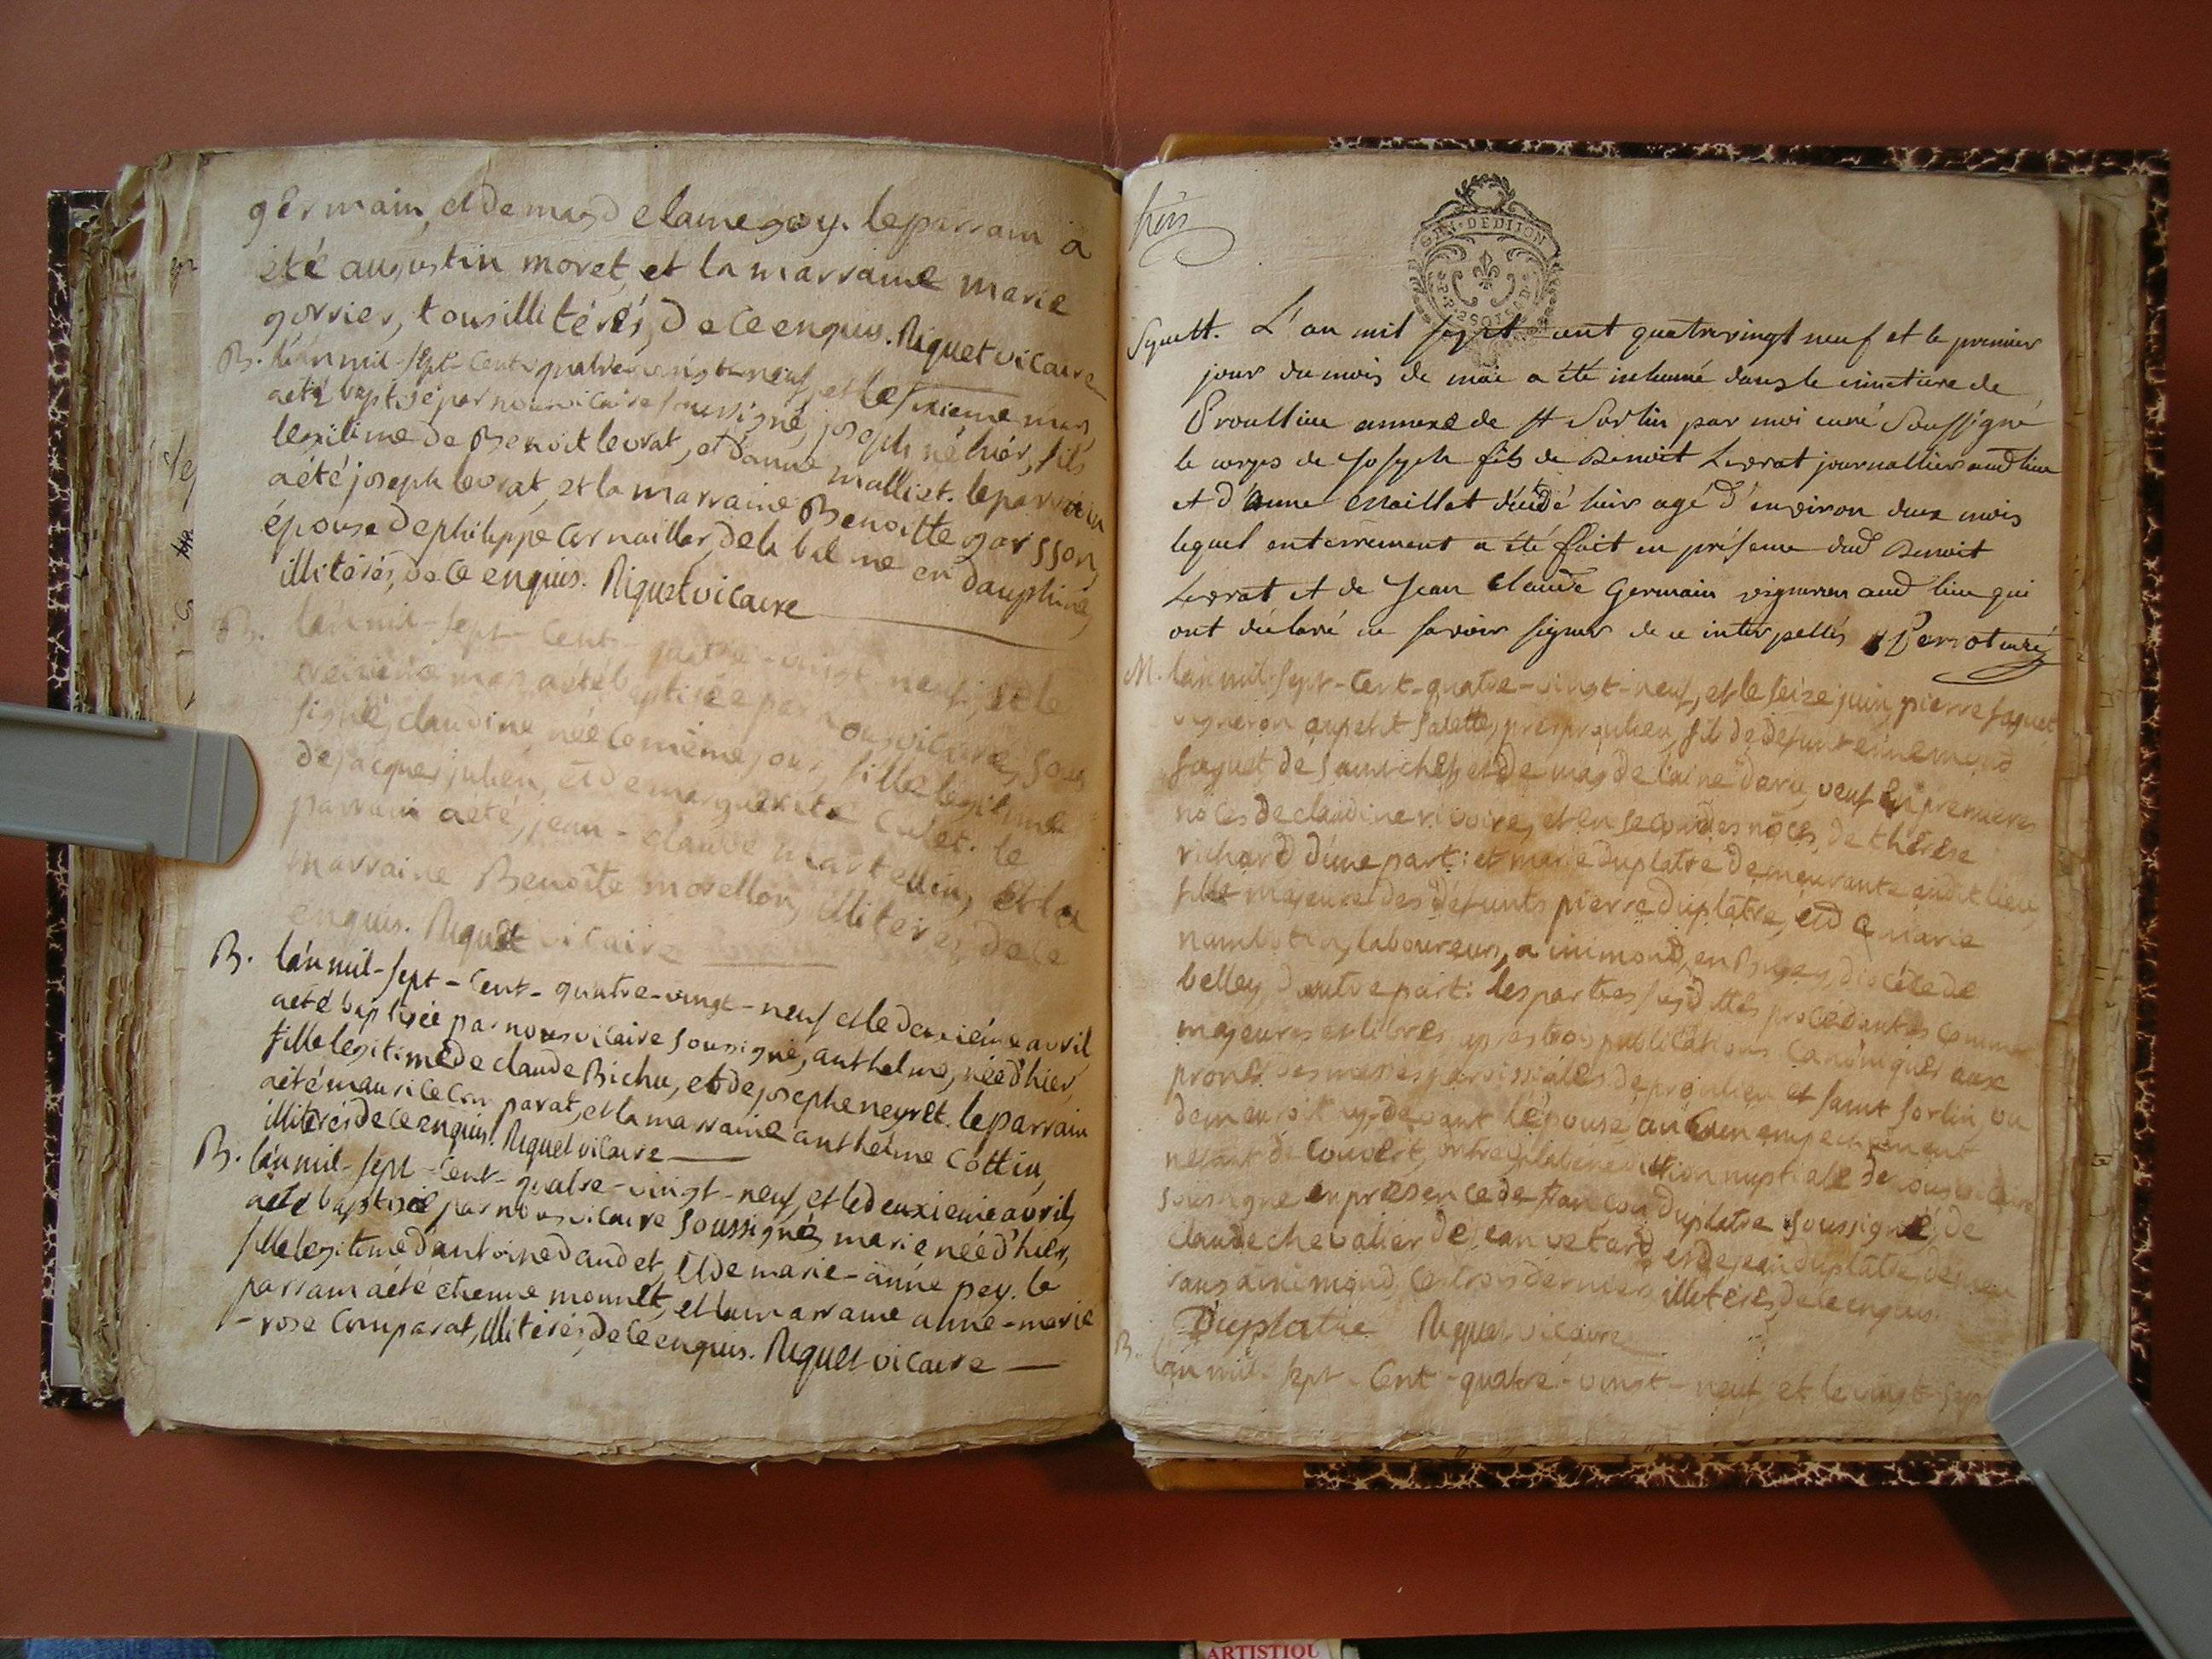 germain, et de magdelaine goy. le parrain a
été augustin moret, et la marraine marie
gorrier, tous illitérés, de ce enquis. Riquet vicaire
B. l'an mil-sept-cent-quatre-vingt-neuf, et le sixieme mars
a été baptisé par nous vicaire soussigné, joseph né hier, fils
legitime de Benoit levrat, et d'anne malliet. le parrain
a été joseph levrat, et la marraine Benoitte garsson,
épouse de philippe Cornaillar, de la balme en dauphiné,
illitérés, de ce enquis. Riquet vicaire
B. l'an mil-sept-cent-quatre-vingt-neuf, et le
treizieme mars a été baptisée par nous vicaire, sous
signé, claudine née le même jour, fille legitime
de jacques julien, et de marguerite Culet. le
parrain a été, jean-claude Martellin, et la
marraine Benoîte morellon, illiterés, de ce
enquis. Riquet vicaire
B. l'an mil-sept-cent-quatre-vingt-neuf et le deuxiéme avril
a été baptisée par nous vicaire sousigné, anthelme, née d'hier,
fille legitime de claude Bichu, et de josephe neyret. le parrain
a été maurice Comparat, et la marraine anthelme Cottin,
illiterés de ce enquis. Riquet vicaire
B. l'an mil-sept-cent-quatre-vingt-neuf, et le deuxieme avril,
a été baptisée par nous vicaire soussigné, marie née d'hier,
fille legitime d'antoine daudet, et de marie-anne pey. le
parrain a été etienne monnet, et la marraine anne-marie
-rose Comparat, illiterés, de ce enquis. Riquet vicaire
trois
GEN·DE DIJON
Sepult. L'an mil sept cent quatrevingt neuf et le premier
jour du mois de mai a été inhumé dans le cimetiere de
Proullieu annexe de St Sorlin par moi curé Soussigné
le corps de Joseph fils de Benoit Levrat journallier aud lieu
et d'Anne Maillet décédé hier agé d'environ deux mois
lequel enterrement a été fait en présence dud Benoit
Levrat et de Jean Claude Germain vigneron aud lieu qui
ont déclaré ne savoir signer de ce interpellés Perrot curé
M. l'an mil-sept-cent-quatre-vingt-neuf, et le seize juin, pierre faguet
vigneron au petit salette, près proulieu, fils de defunt ennemond
faguet de saint chef, et de magdelaine davie, veuf en premieres
noces de claudine rivoire, et en secondes noces, de thérèse
richard d'une part: et marie duplatre demeurante audit lieu,
fille majeure des defunts pierre duplatre, et de marie
numbotin, laboureurs, a inimond, en Bugey, diocése de
belley, d'autre part: les parties susdittes procédantes comme
majeures et libres, apres trois publications canoniques aux
prones des messes paroissiales de proulieu et saint sorlin, ou
demeuroit cy-devant l'épouse, aucun empechement
n'etant decouvert, ont reçu la benediction nuptiale de nous vicaire
soussigné en presence de francois duplatre soussigné, de
claude chevalier de jean vetard, et de jean duplatre, demeu
rans a inimond, ces trois derniers illiterés, de ce enquis.
Duplatre Riquet vicaire
B. l'an mil-sept-cent-quatre-vingt-neuf, et le vingt-sept
ARTISTIQU